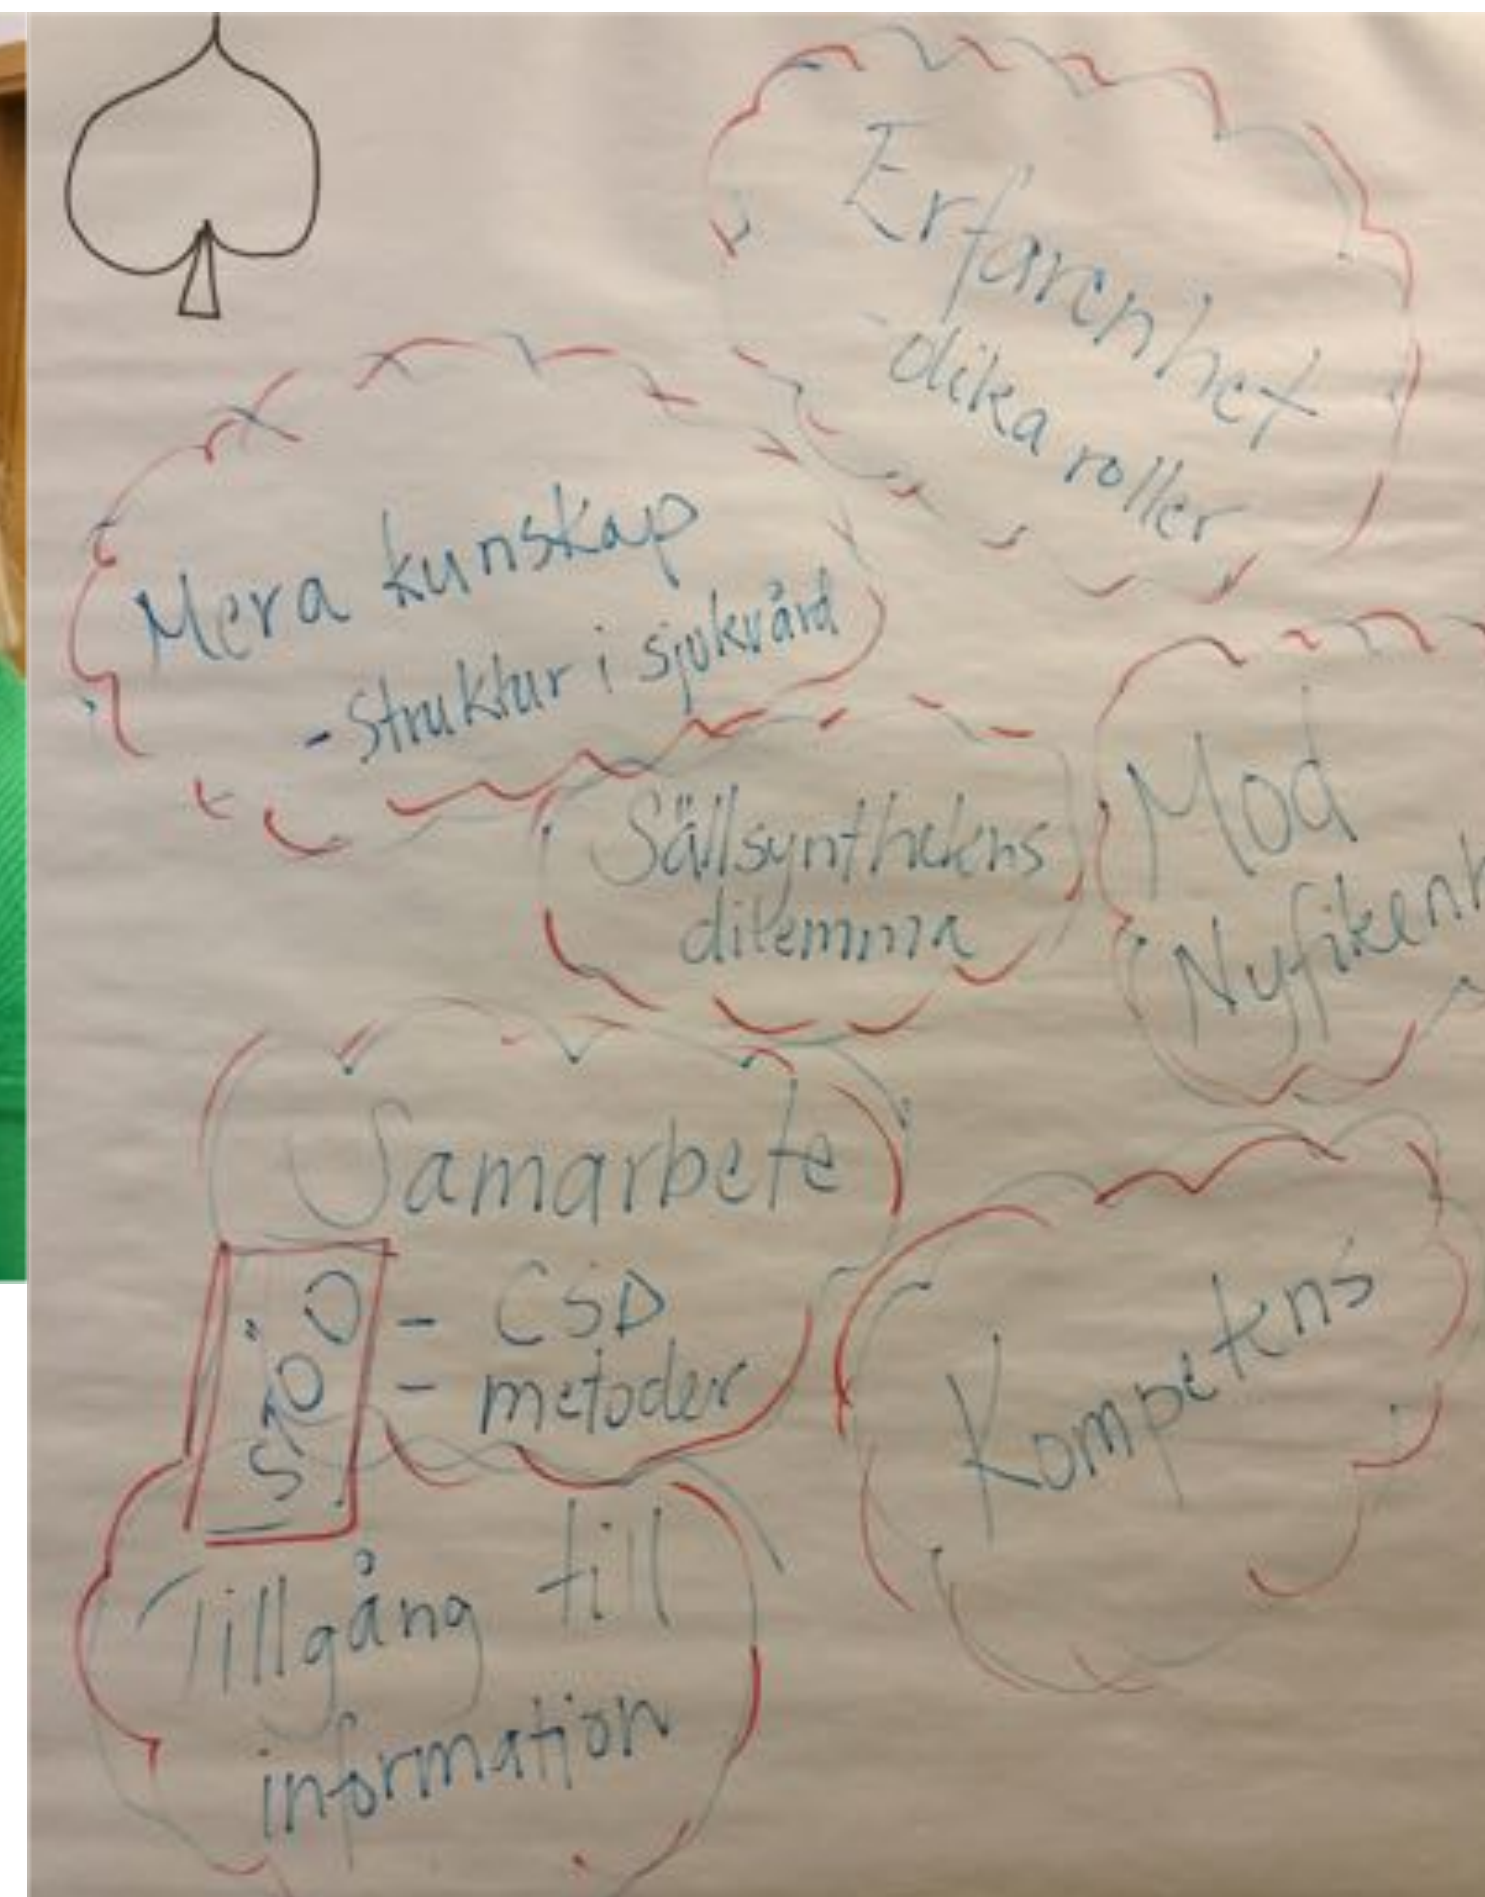 Erfarenhet
- olika roller
Mera kunskap
- Struktur i sjukvård
Sällsynthetens
dilemma
Mod
Nyfikenh
Samarbete
- CSD
- metoder
Kompetens
Tillgång till
information